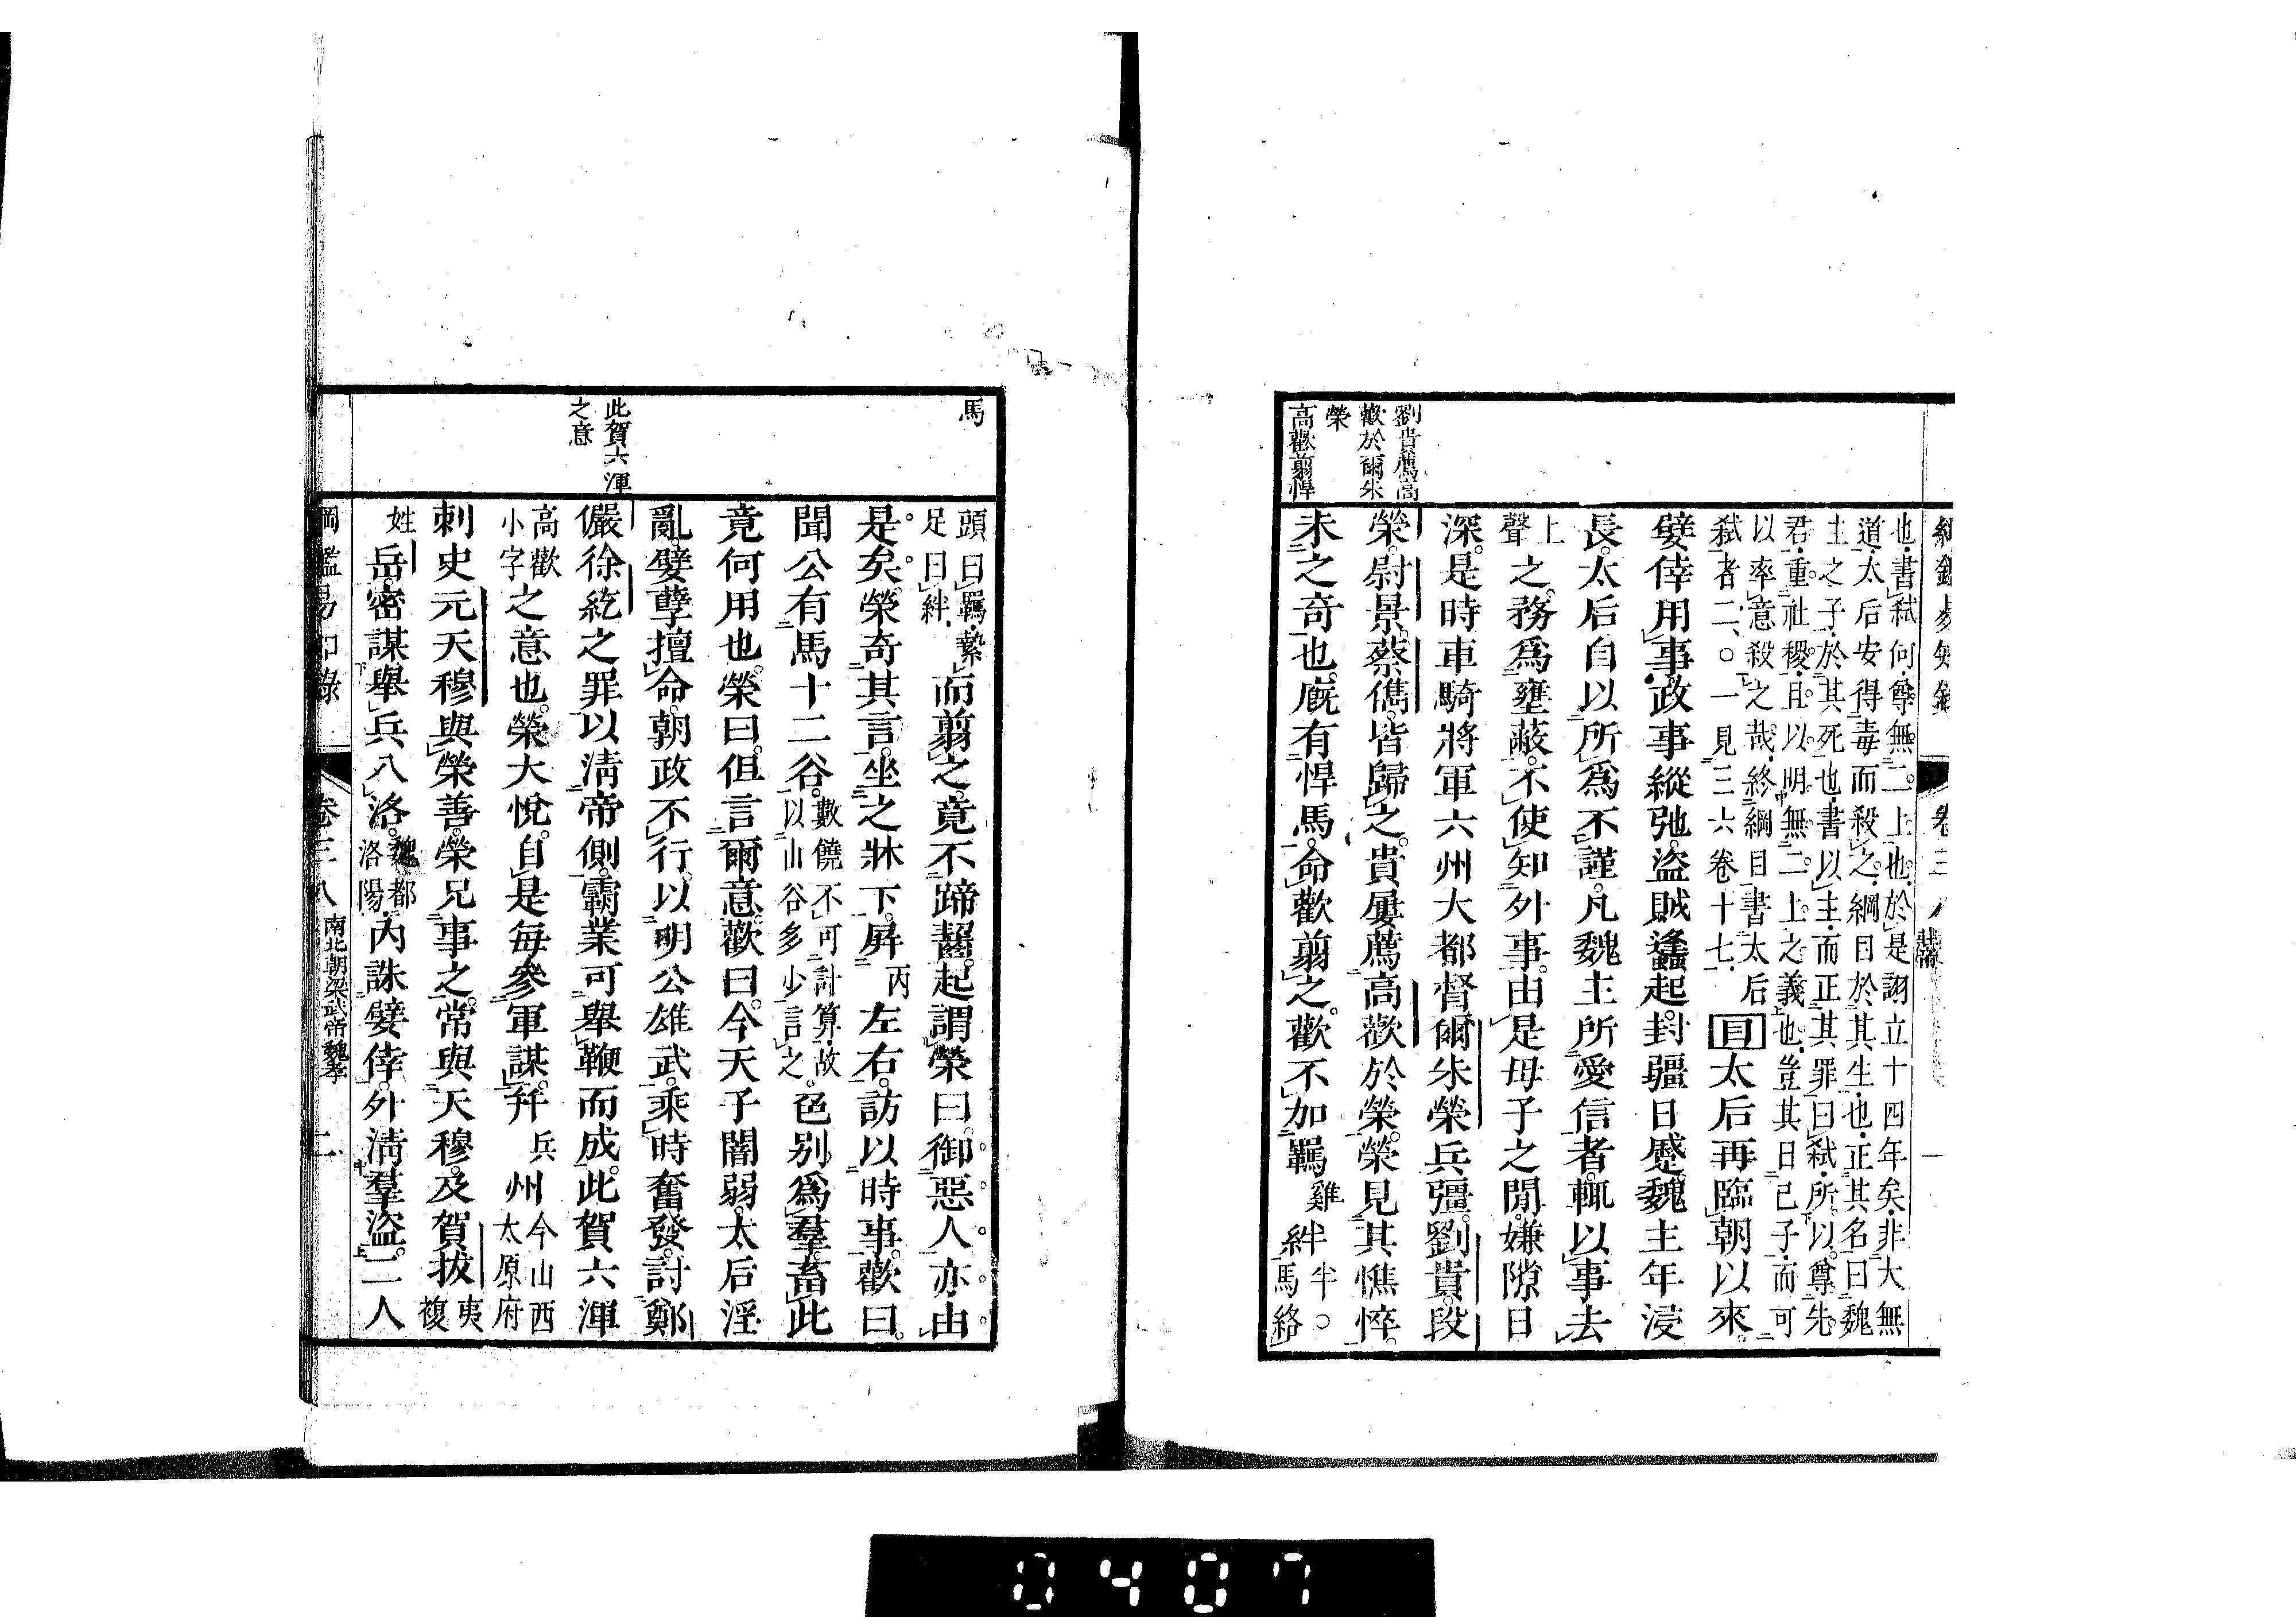 也書弑何尊無二上也於是詡立十四年矣非大無
道太后安得毒而殺之綱目於其生也正其名曰魏
主之子於其死也書以主而正其罪曰弑所以尊先
君重社稷且以明無二上之義也豈其曰己子而可
以率意殺之哉終綱目書太后
弑者二○一見三六卷十七 目太后再臨朝以來
嬖倖用事政事縱弛盜賊蠭起封疆日蹙魏主年浸
長太后自以所爲不謹凡魏主所愛信者輒以事去
上聲之務爲壅蔽不使知外事由是母子之閒嫌隙日
深是時車騎將軍六州大都督爾朱榮兵彊劉貴段
榮尉景蔡儁皆歸之貴屢薦高歡於榮榮見其憔悴
未之奇也廐有悍馬命歡翦之歡不加羈雞絆半○馬絡
劉貴薦高
歡於爾朱
榮
高歡翦悍
馬
頭曰羈縶足曰絆而翦之竟不蹄齧起謂榮曰御惡人亦由
是矣榮奇其言坐之牀下屏丙左右訪以時事歡曰
聞公有馬十二谷數饒不可計算故以山谷多少言之色別爲羣畜此
竟何用也榮曰但言爾意歡曰今天子闇弱太后淫
亂嬖孽擅命朝政不行以明公雄武乘時奮發討鄭
儼徐紇之罪以淸帝側霸業可舉鞭而成此賀六渾
高歡小字之意也榮大悅自是每參軍謀幷兵州今山西太原府
刺史元天穆與榮善榮兄事之常與天穆及賀拔夷複
姓岳密謀舉兵入洛魏都洛陽內誅嬖倖外淸羣盜二人
此賀六渾
之意
綱鑑易知錄 卷三八 南北朝梁武帝魏孝 二